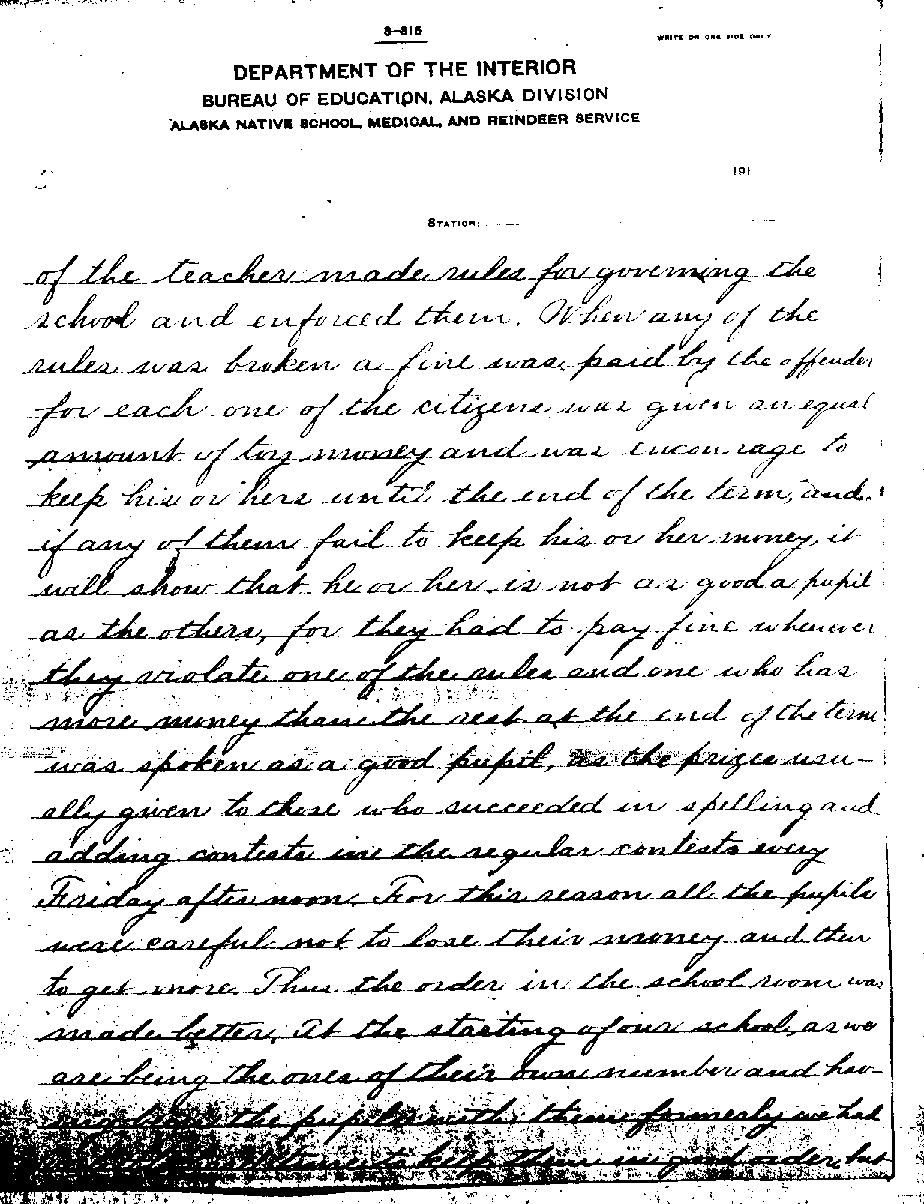 8-815
WRITE ON ONE SIDE ONLY
DEPARTMENT OF THE INTERIOR
BUREAU OF EDUCATION, ALASKA DIVISION
ALASKA NATIVE SCHOOL, MEDICAL, AND REINDEER SERVICE
191
STATION:
of the teacher made rules for governing the
school and enforced them. When any of the
rules was broken a fine was paid by the offender
for each one of the citizens was given an equal
amount of toy money and was encourage to
keep his or hers until the end of the term, and
if any of them fail to keep his or her money, it
will show that he or her is not as good a pupil
as the others, for they had to pay fine whenever
they violate one of the rules and one who has
more money than the rest at the end of the term
was spoken as a good pupil, as the prizes usu-
ally given to those who succeeded in spelling and
adding contests in the regular contests every
Friday afternoon. For this reason all the pupils
were careful not to lose their money and then
to get more. Thus the order in the school room was
made better. At the starting of our school, as we
are being the ones of their own number and hav-
ing been the pupils with them formerly we had
time to keep them in good order, but